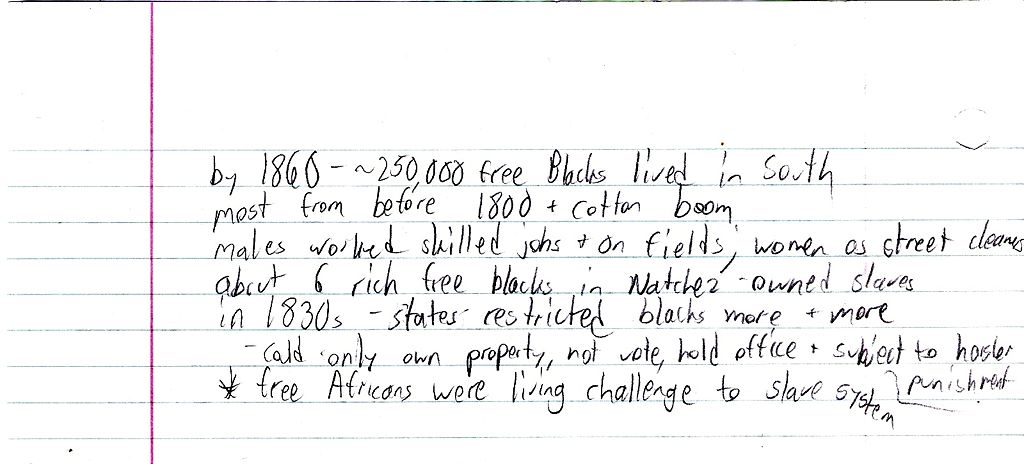 by 1860 - ~250,000 free Blacks lived in South
most from before 1800 + cotton boom
males worked skilled jobs + on fields, women as street cleaners
about 6 rich free blacks in Natchez - owned slaves
in 1830s - states restricted blacks more + more
- could only own property, not vote, hold office + subject to harsher
* free Africans were living challenge to slave system
punishment